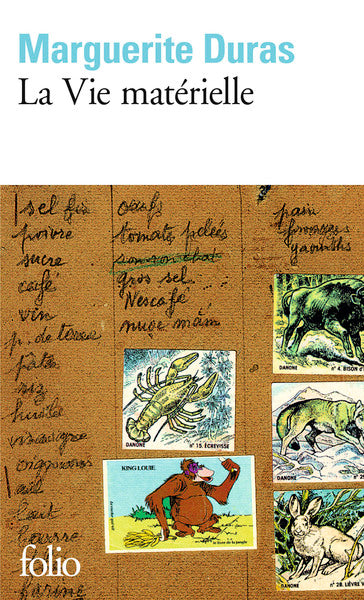 Marguerite Duras
La Vie matérielle
sel fin
poivre
sucre
café
vin
p. de terre
pâtes
riz
huile
vinaigre
oignons
ail
lait
beurre
farine
oeufs
tomates pelées
gros sel
Nescafé
nuoc mâm
pain
fromages
yaourths
DANONE n° 4. BISON d'
DANONE n° 15. ÉCREVISSE
DANONE
KING LOUIE
le livre de la jungle
DANONE n° 28. LIÈVRE
folio